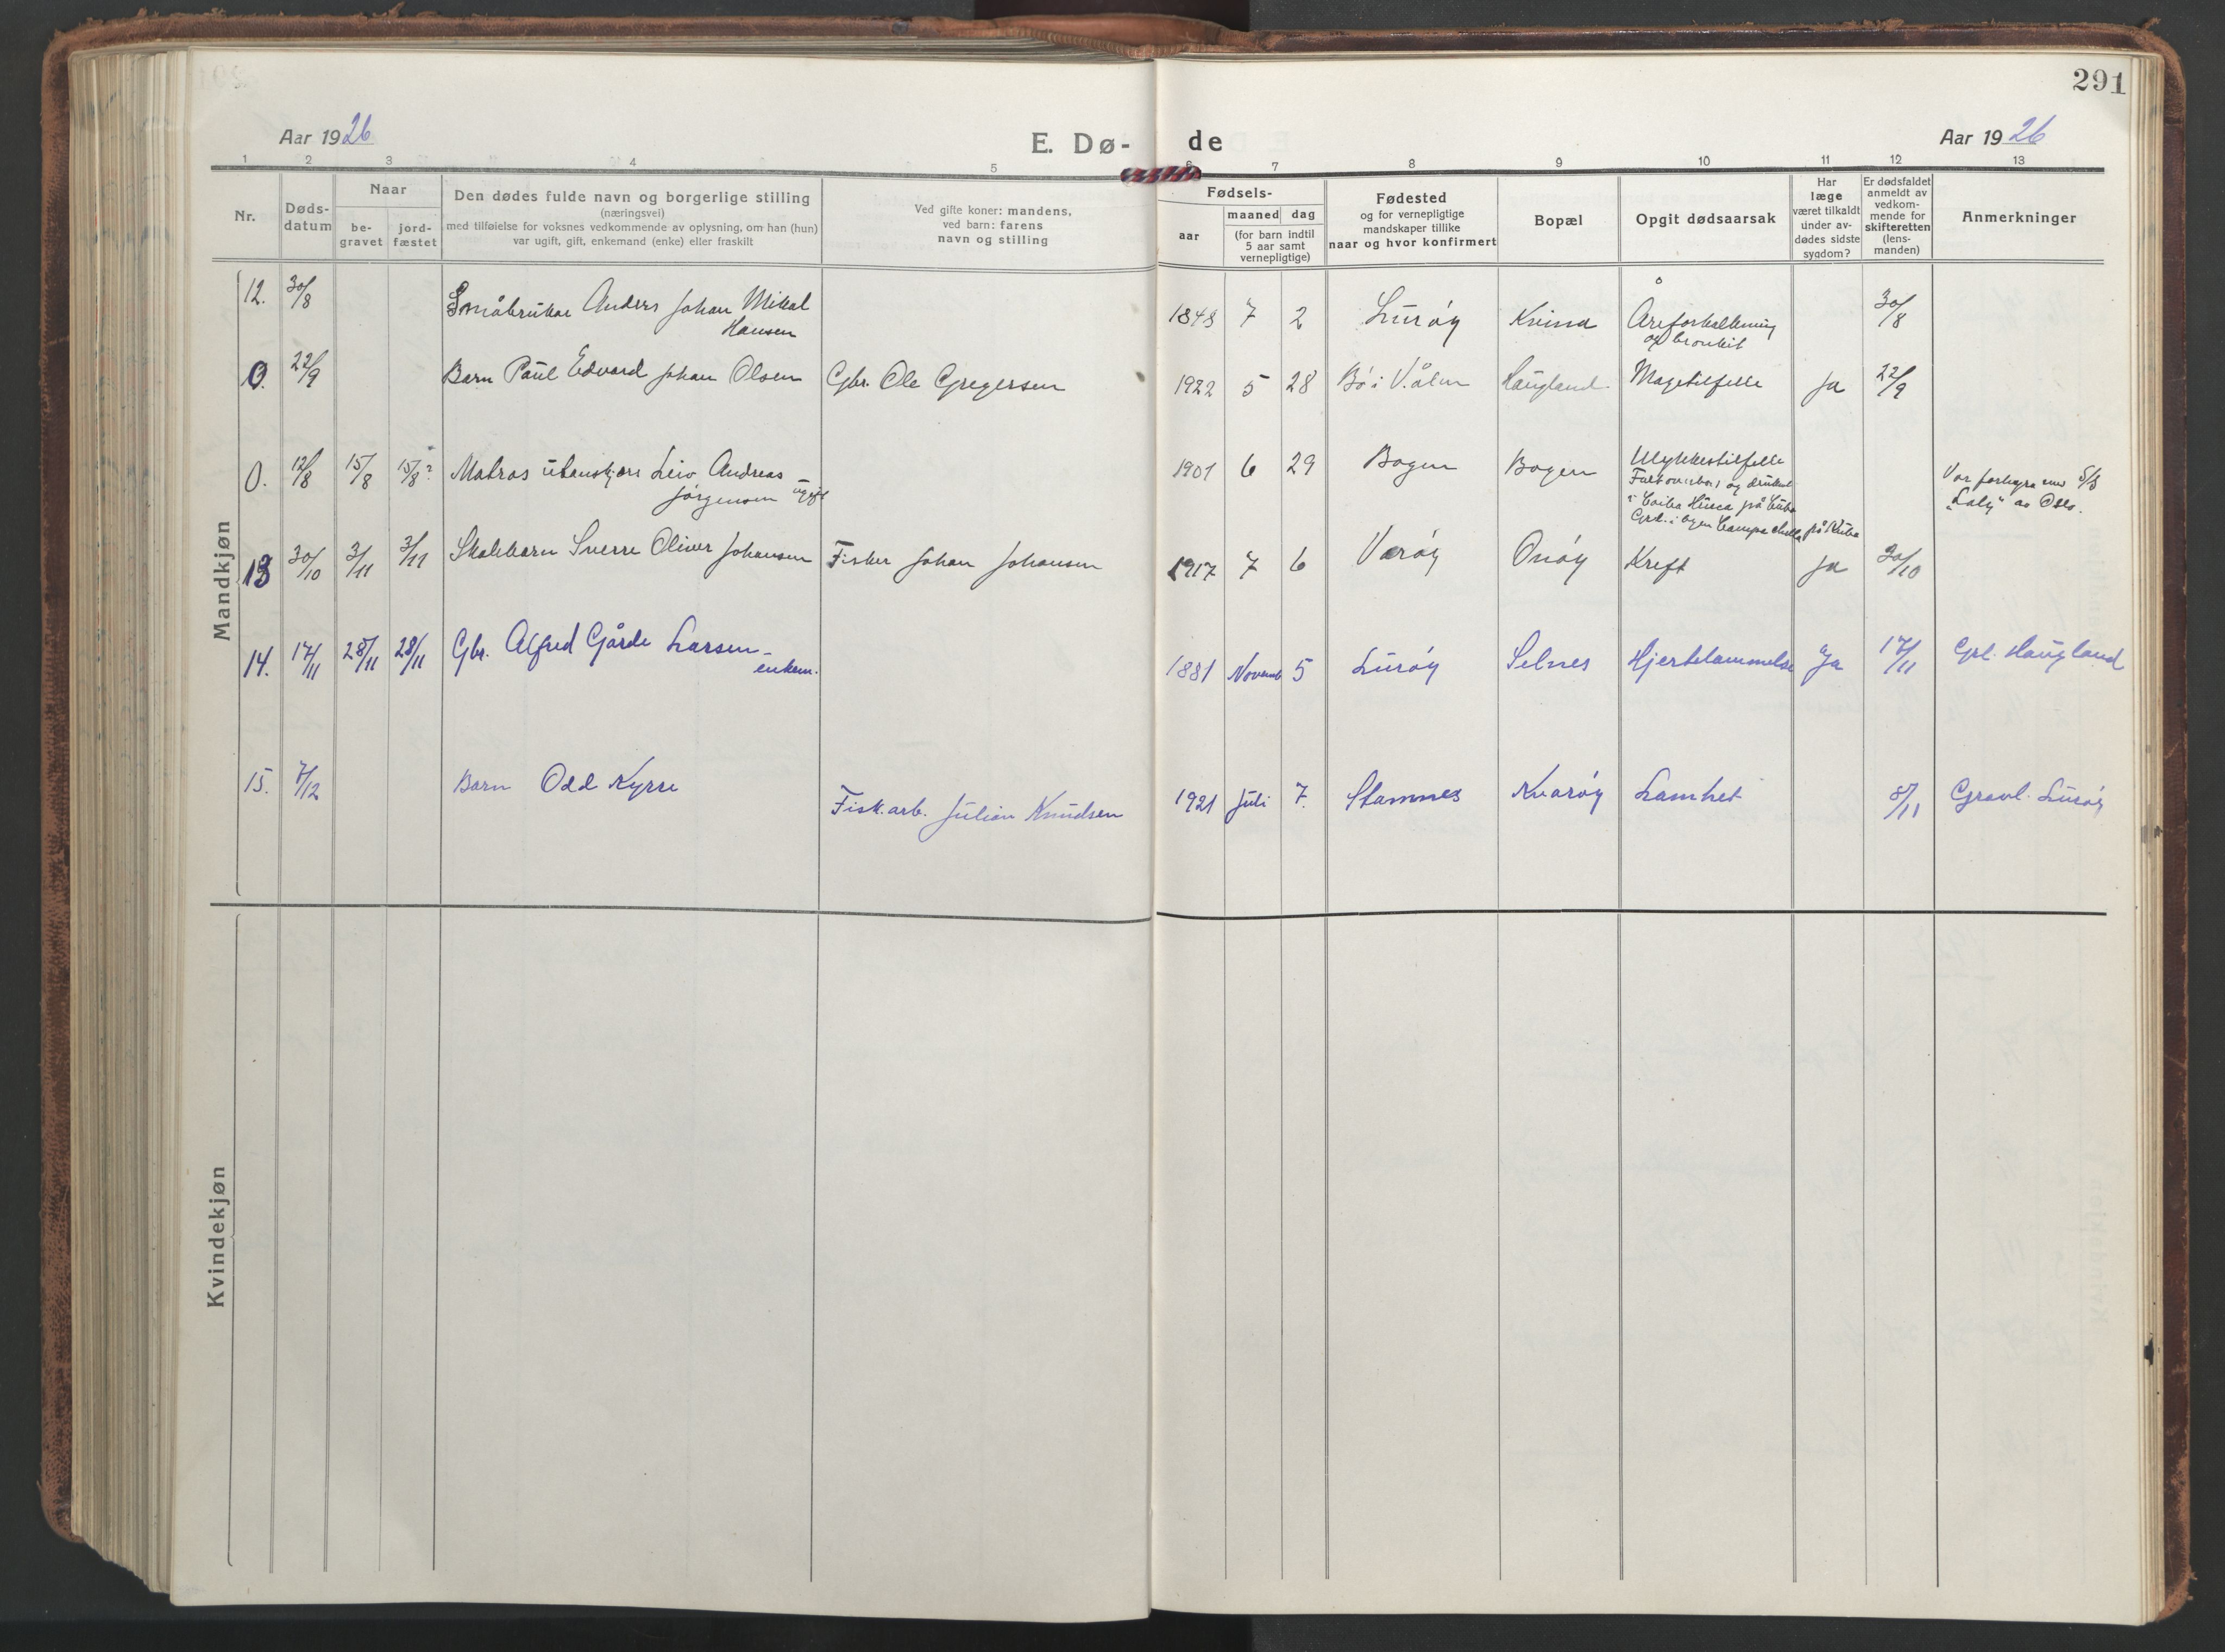 291
Aar 1926
E. Dø- de
Aar 1926
1 2 3 4 5 6 7 8 9 10 11 12 13
Nr.
Døds-
datum
Naar
be-
gravet
jord-
fæstet
Den dødes fulde navn og borgerlige stilling
(næringsvei)
med tilføielse for voksnes vedkommende av oplysning, om han (hun)
var ugift, gift, enkemand (enke) eller fraskilt
Ved gifte koner: mandens,
ved barn: farens
navn og stilling
Fødsels-
aar
maaned dag
(for barn indtil
5 aar samt
vernepligtige)
Fødested
og for vernepligtige
mandskaper tillike
naar og hvor konfirmert
Bopæl
Opgit dødsaarsak
Har
læge
været tilkaldt
under av-
dødes sidste
sygdom?
Er dødsfaldet
anmeldt av
vedkom-
mende for
skifteretten
(lens-
manden)
Anmerkninger
Mandkjøn
12. 30/8 Småbruker Anders Johan Mikal
Hansen
1848 7 2 Lurøy Kvina Åreforkalkning
og bronkit
30/8
0. 22/9 Barn Paul Edvard Johan Olsen Gbr. Ole Gregersen 1922 5 28 Bø i V.ålen Haugland. Magetilfelle Ja 22/9
0. 12/8 15/8 15/8? Matros utenskjærs Leiv Andreas
Jørgensen ugift
1901 6 29 Bogen Bogen Ulykkestilfelle
og druknet
på Cuba
på Kuba
S/S
"Laly" av Oslo.
13 30/10 3/11 3/11 Skolebarn Sverre Oliver Johansen Fisker Johan Johansen 1917 7 6 Værøy Onøy Kreft Ja 30/10
14. 17/11 28/11 28/11 Gbr. Alfred Gårde Larsen -
enkem.
1881 Novemb 5 Lurøy Selnes Hjertelammelse Ja 17/11 Grl. Haugland
15. 7/12 Barn Odd Kyrre
Fisk.arb. Julian Knudsen 1921 Juli 7. Stamnes Kvarøy Lamhet 8/11 Gravl. Lurøy
Kvindekjøn